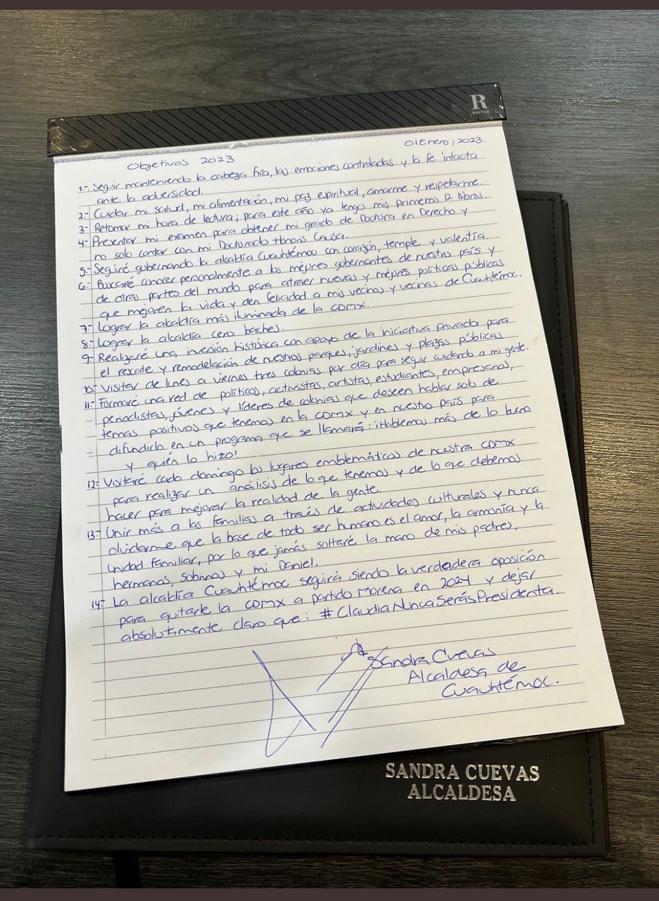 R
01Enero, 2023.
Objetivos 2023
1.- Seguir manteniendo la cabeza fría, las emociones controladas y la fe intacta
ante la adversidad.
2.- Cuidar mi salud, mi alimentación, mi paz espiritual, amarme y respetarme.
3.- Retomar mi hora de lectura, para este año ya tengo mis primeros 12 libros.
4.- Presentar mi examen para obtener mi grado de Doctora en Derecho y
no solo contar con mi Doctorado Honoris Causa.
5.- Seguiré gobernando la alcaldía Cuauhtémoc con corazón, temple y valentía.
6.- Buscaré conocer personalmente a los mejores gobernantes de nuestro país y
de otras partes del mundo para atraer nuevas y mejores políticas públicas
que mejoren la vida y den felicidad a mis vecinos y vecinas de Cuauhtémoc.
7.- Lograr la alcaldía más iluminada de la CDMX.
8.- Lograr la alcaldía cero baches.
9.- Realizaré una inversión histórica con apoyo de la iniciativa privada para
el rescate y remodelación de nuestros parques, jardines y plazas públicas
10.- Visitar de lunes a viernes tres colonias por día para seguir cuidando a mi gente.
11.- Formaré una red de políticos, activistas, artistas, estudiantes, empresarios,
periodistas, jóvenes y líderes de colonias que deseen hablar solo de
temas positivos que tenemos en la CDMX y en nuestro país para
difundirlo en un programa que se llamará: ¡Hablemos más de lo bueno
y quién lo hizo!
12.- Visitaré cada domingo los lugares emblemáticos de nuestra CDMX
para realizar un análisis de lo que tenemos y de lo que debemos
hacer para mejorar la realidad de la gente.
13.- Unir más a las familias a través de actividades culturales y nunca
olvidarme que la base de todo ser humano es el amor, la armonía y la
unidad familiar, por lo que jamás soltaré la mano de mis padres,
hermanos, sobrinos y mi Daniel.
14.- La alcaldía Cuauhtémoc seguirá siendo la verdadera oposición
para quitarle la CDMX a partido Morena en 2024 y dejar
absolutamente claro que: #ClaudiaNuncaSerásPresidenta
Sandra Cuevas
Alcaldesa de
Cuauhtémoc.
SANDRA CUEVAS
ALCALDESA